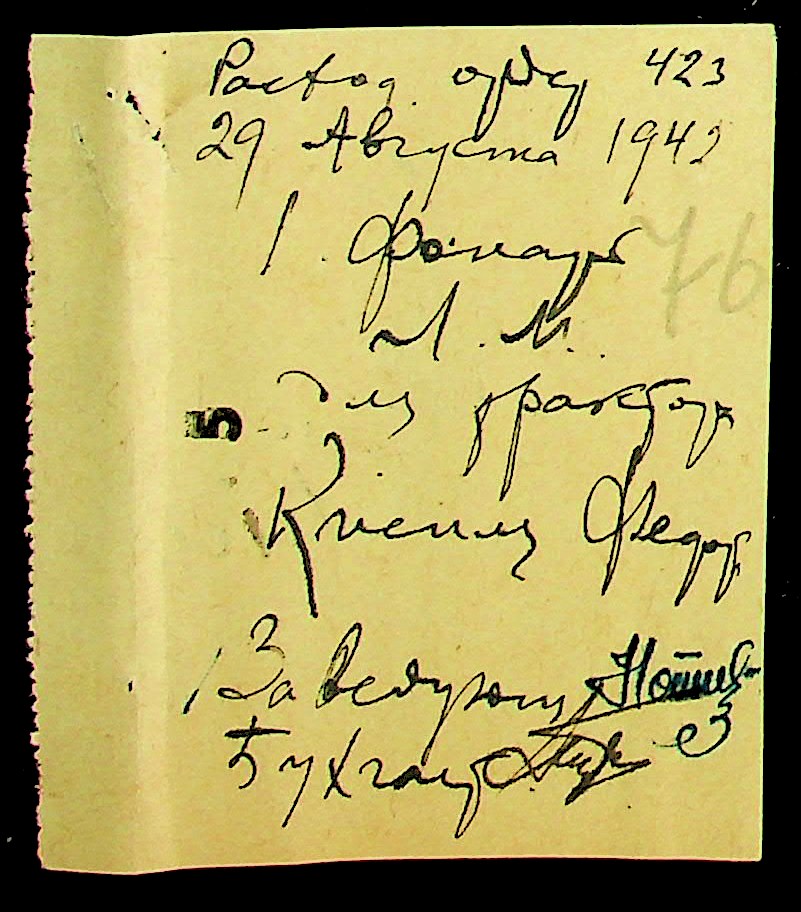 Расход. орде 423
29 Августа 1942
76
1. Фонарь
Л. М.
5
для трактор
Книпиц Федор
Заведующ
Бухгалт